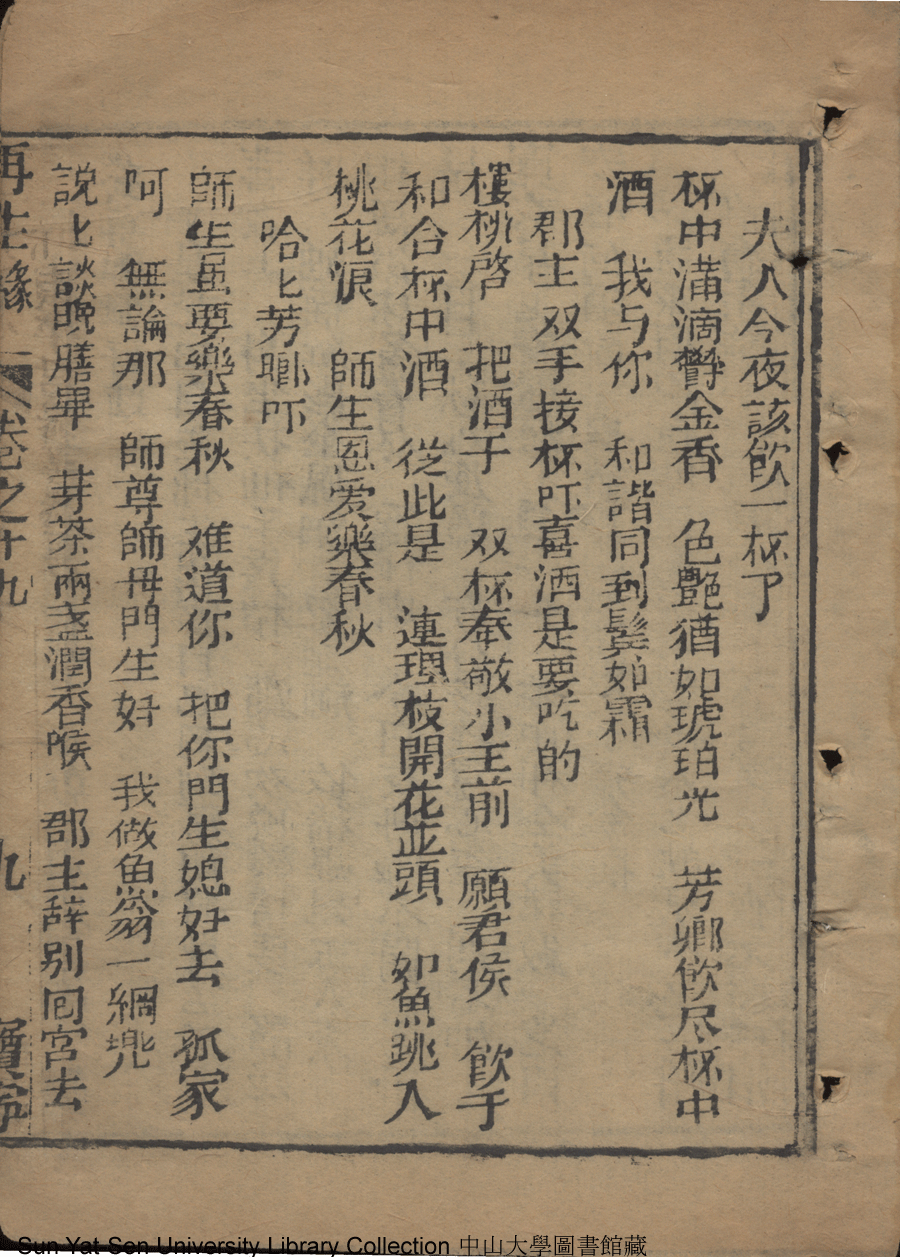 夫人今夜該飲一杯了
杯中滿滴欝金香　色艷猶如琥珀光　芳卿飲尽杯中
酒　我与你　和諧同到鬂如霜
郡主双手接杯吓喜酒是要吃的
櫻桃啓　把酒于　双杯奉敬小王前　願君侯　飲于
和合杯中酒　從此是　連理枝開花並頭　如魚跳入
桃花浪　師生恩爱樂春秋
哈匕芳卿吓
師生虽要樂春秋　难道你　把你門生媳好去　孤家
呵　無論那　師尊師毋門生好　我做魚翁一網兠
説匕談晩膳畢　芽茶兩盞潤香喉　郡主辞别囘宮去
再生緣　卷之十九　九　寶寧
Sun Yat Sen University Library Collection 中山大學圖書館藏